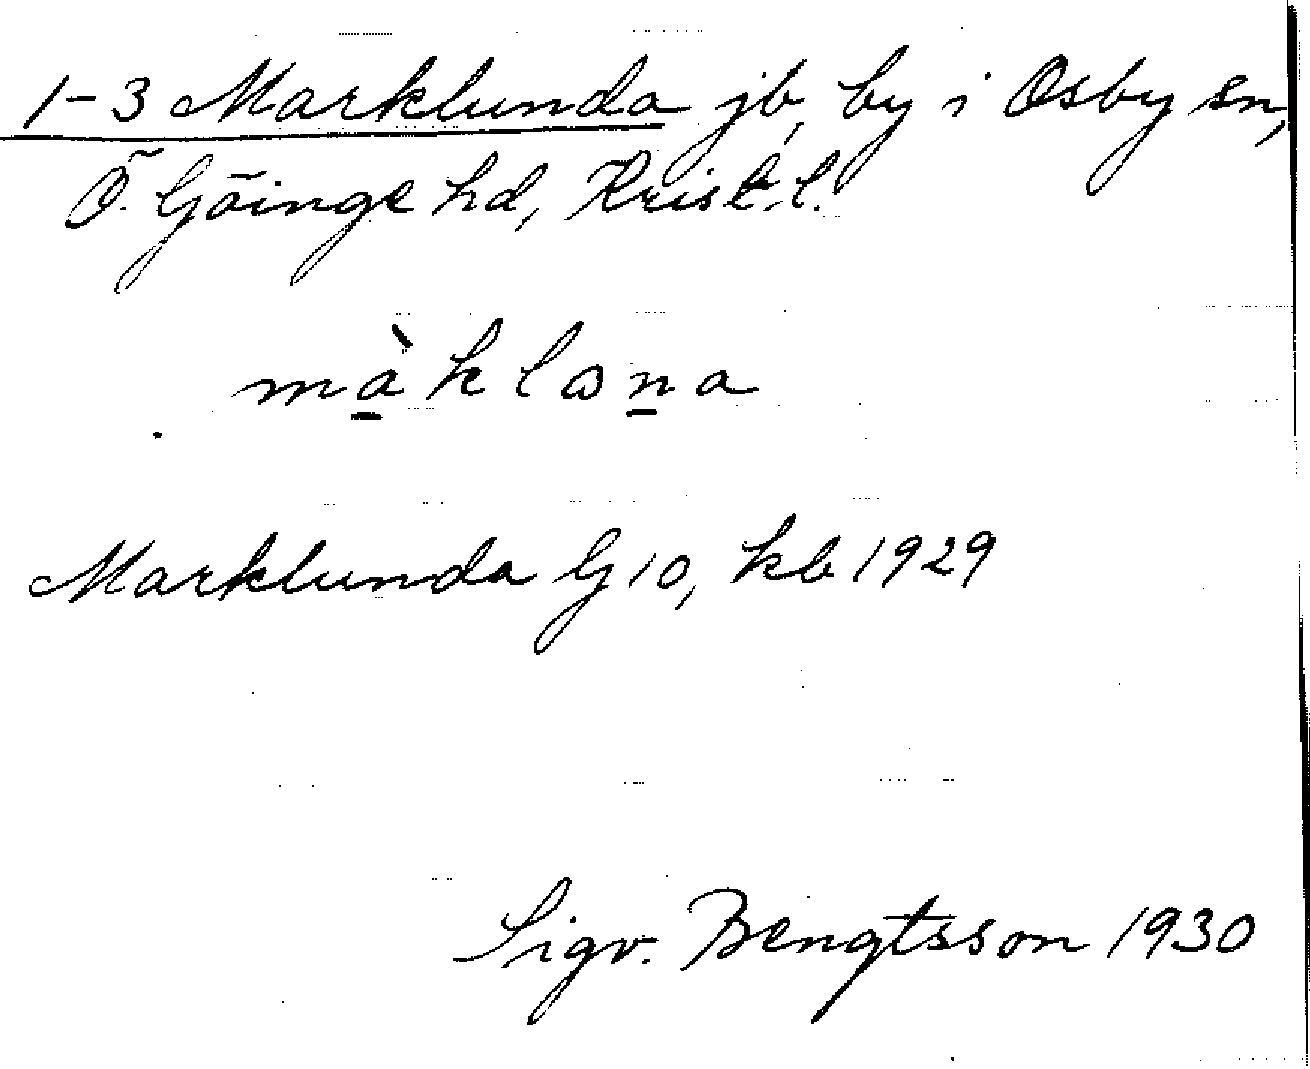 1-3 Marklunda jb, by i Osby sn,
Ö. Göinge hd, Krist. l.
màklɷna
Marklunda G10, kb 1929
Sigv. Bengtsson 1930